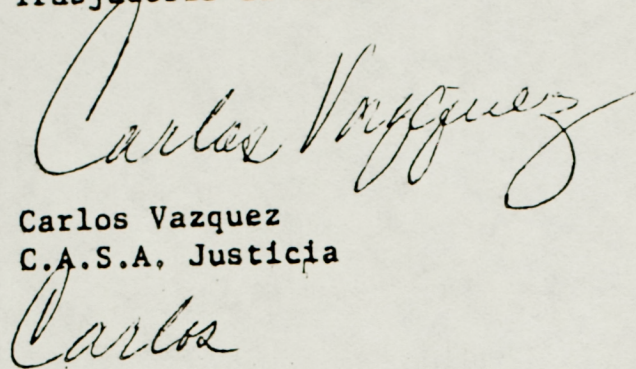 Carlos Vazquez
Carlos Vazquez
C.A.S.A. Justicia
Carlos